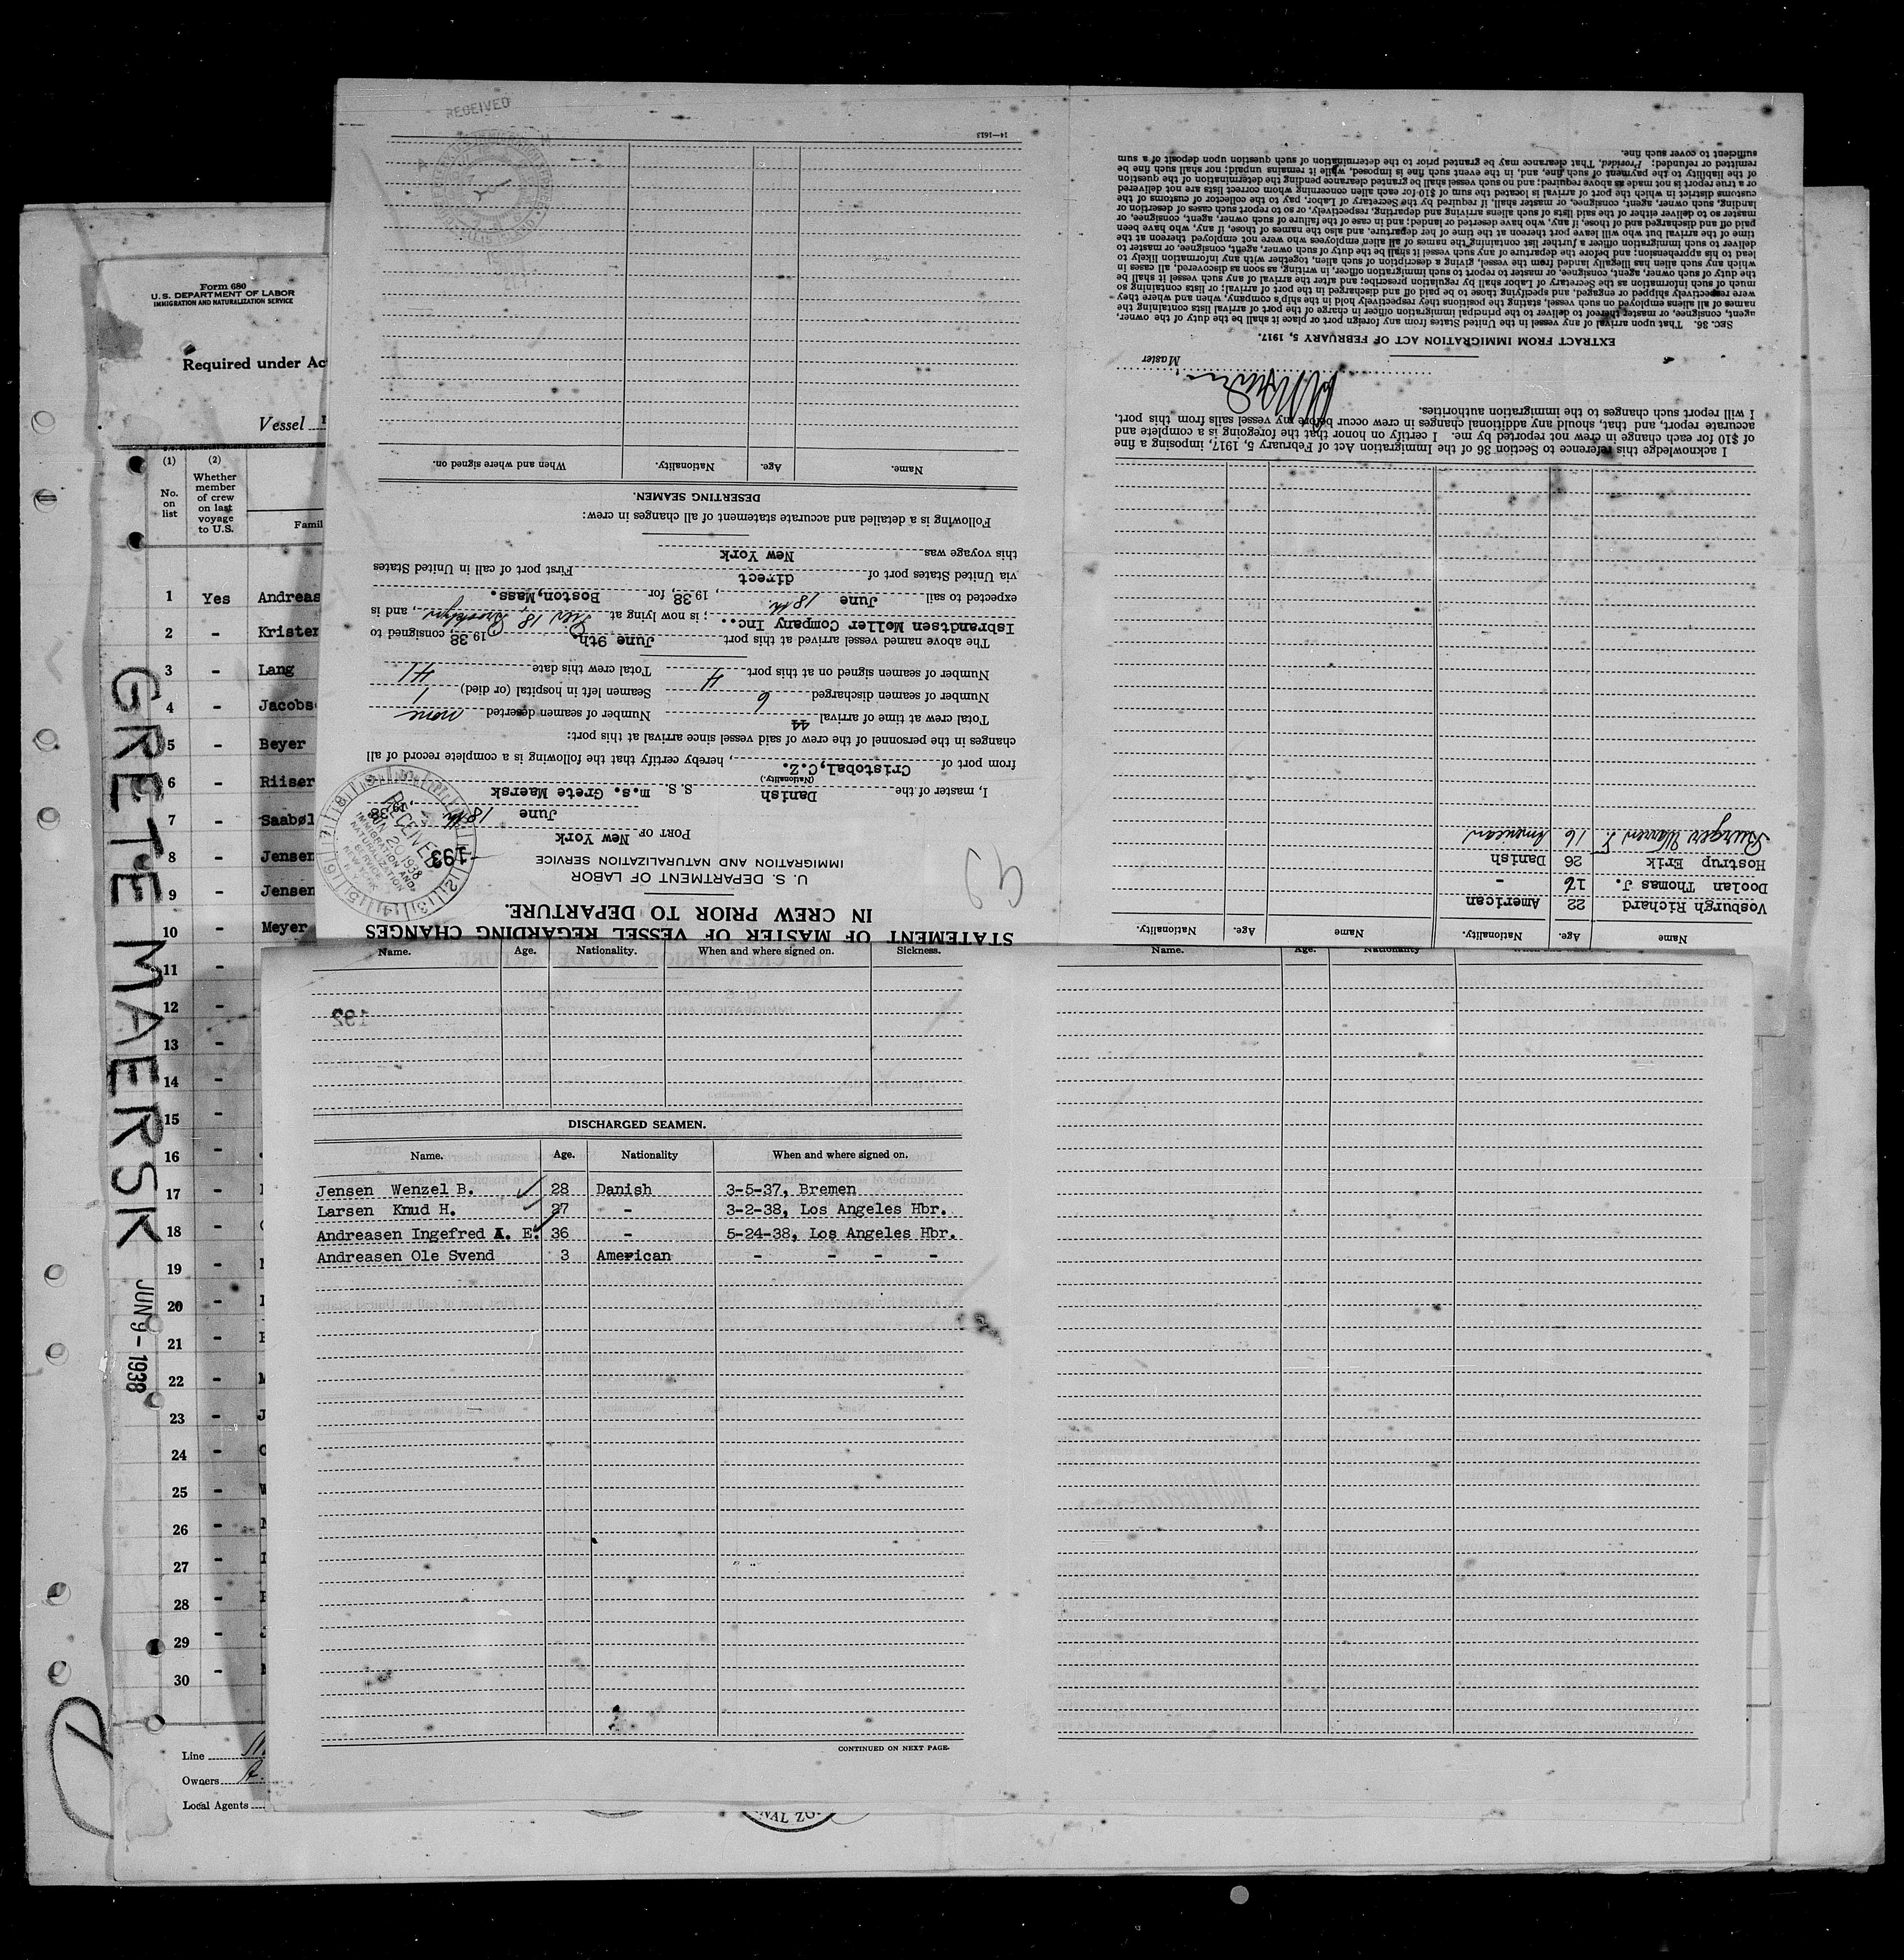 Form 680
U.S. DEPARTMENT OF LABOR
IMMIGRATION AND NATURALIZATION SERVICE
Required under Ac
Vessel
(1) (2)
No. on list
Whether member of crew on last voyage to U.S.
Famil
1 Yes Andreas
2 - Krister
3 - Lang
4 - Jacobs
5 - Beyer
6 - Riiser
7 - Saabøl
8 - Jensen
9 - Jensen
10 - Meyer
11 -
12 -
13 -
14 -
15 -
16 -
17 -
18 -
19 -
20 -
21 -
22 -
23 -
24 -
25 -
26 -
27 -
28 -
29 -
30 -
Line
Owners
Local Agents
GRETE MAERSK
JUN 9 - 1938
STATEMENT OF MASTER OF VESSEL REGARDING CHANGES
IN CREW PRIOR TO DEPARTURE.
U. S. DEPARTMENT OF LABOR
IMMIGRATION AND NATURALIZATION SERVICE
193
PORT OF New York
June 18th, 1938.
RECEIVED
JUN 20 1938
IMMIGRATION AND
NATURALIZATION
SERVICE
I, master of the Danish S. S. m.s. Grete Maersk
(Nationality.)
from port of Cristobal,C.Z., hereby certify that the following is a complete record of all
changes in the personnel of the crew of said vessel since arrival at this port:
Total crew at time of arrival 44 Number of seamen deserted none
Number of seamen discharged 6 Seamen left in hospital (or died) 1
Number of seamen signed on at this port 4 Total crew this date 41
The above named vessel arrived at this port June 9th. 1938, consigned to
Isbrandtsen Moller Company Inc..; is now lying at Pier 18, Brooklyn, and is
expected to sail June 18th, 1938, for Boston,Mass.
via United States port of direct First port of call in United States
this voyage was New York
Following is a detailed and accurate statement of all changes in crew:
DESERTING SEAMEN.
Name. Age. Nationality. When and where signed on.
14—1613
RECEIVED
Name Age. Nationality. Name Age. Nationality.
Vosburgh Richard 22 American
Doolan Thomas J. 17 -
Hostrup Erik 26 Danish
Burger Warren T 16 American
I acknowledge this reference to Section 36 of the Immigration Act of February 5, 1917, imposing a fine
of $10 for each change in crew not reported by me. I certify on honor that the foregoing is a complete and
accurate report, and that, should any additional changes in crew occur before my vessel sails from this port,
I will report such changes to the immigration authorities.
Master
EXTRACT FROM IMMIGRATION ACT OF FEBRUARY 5, 1917.
SEC. 36. That upon arrival of any vessel in the United States from any foreign port or place it shall be the duty of the owner,
agent, consignee, or master thereof to deliver to the principal immigration officer in charge of the port of arrival lists containing the
names of all aliens employed on such vessel, stating the positions they respectively hold in the ship's company, when and where they
were respectively shipped or engaged, and specifying those to be paid off and discharged in the port of arrival; or lists containing so
much of such information as the Secretary of Labor shall by regulation prescribe; and after the arrival of any such vessel it shall be
the duty of such owner, agent, consignee, or master to report to such immigration officer, in writing, as soon as discovered, all cases in
which any such alien has illegally landed from the vessel, giving a description of such alien, together with any information likely to
lead to his apprehension; and before the departure of any such vessel it shall be the duty of such owner, agent, consignee, or master to
deliver to such immigration officer a further list containing the names of all alien employees who were not employed thereon at the
time of the arrival but who will leave port thereon at the time of her departure, and also the names of those, if any, who have been
paid off and discharged and of those, if any, who have deserted or landed; and in case of the failure of such owner, agent, consignee, or
master so to deliver either of the said lists of such aliens arriving and departing, respectively, or so to report such cases of desertion or
landing, such owner, agent, consignee, or master shall, if required by the Secretary of Labor, pay to the collector of customs of the
customs district in which the port of arrival is located the sum of $10 for each alien concerning whom correct lists are not delivered
or a true report is not made as above required; and no such vessel shall be granted clearance pending the determination of the question
of the liability to the payment of such fine, and, in the event such fine is imposed, while it remains unpaid; nor shall such fine be
remitted or refunded; Provided, That clearance may be granted prior to the determination of such question upon deposit of a sum
sufficient to cover such fine.
Name. Age. Nationality. When and where signed on. Sickness.
DISCHARGED SEAMEN.
Name. Age. Nationality When and where signed on.
Jensen Wenzel B. 28 Danish 3-5-37, Bremen
Larsen Knud H. 27 - 3-2-38, Los Angeles Hbr.
Andreasen Ingefred A. E. 36 - 5-24-38, Los Angeles Hbr.
Andreasen Ole Svend 3 American - - - -
CONTINUED ON NEXT PAGE.
Name. Age. Nationality
NAL ZO